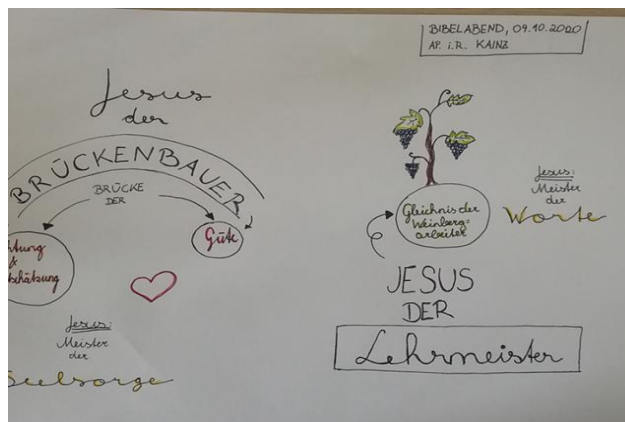 BIBELABEND, 09.10.2020
AP. i.R. KAINZ
Jesus
der
BRÜCKENBAUER
BRÜCKE
DER
htung
&
tschätzung
Güte
Jesus:
Meister
der
Seelsorge
Gleichnis der
Weinberg=
arbeiter
Jesus:
Meister
der
Worte
JESUS
DER
Lehrmeister